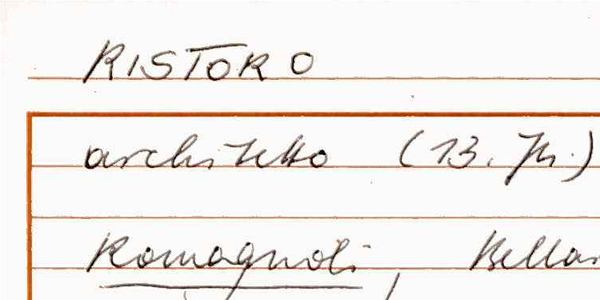 RISTORO
architetto (13. Jh.)
Romagnoli, Bellar